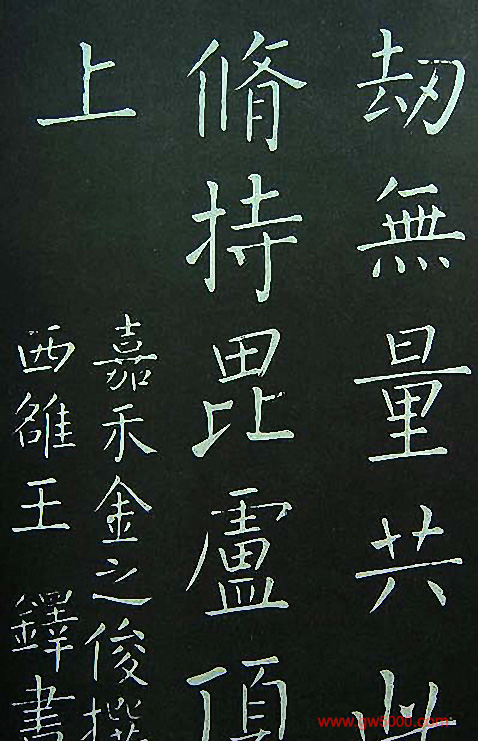 刼無量共此
脩持毘盧頂
上
嘉禾金之俊撰
西雒王鐸書